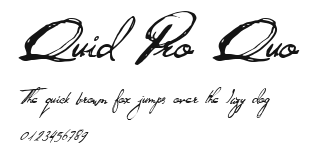 Quid Pro Quo
The quick brown fox jumps over the lazy dog
0123456789